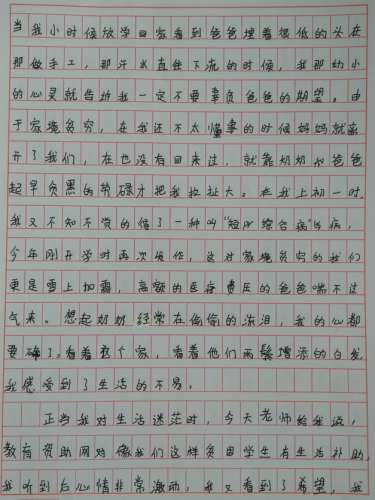 当我小时候放学回家看到爸爸埋着很低的头在
那做手工，那汗水直往下流的时候，我那幼小
的心灵就告诉我一定不要辜负爸爸的期望。由
于家境贫穷，在我还不太懂事的时候妈妈就离
开了我们，在也没有回来过，就靠奶奶和爸爸
起早贪黑的劳碌才把我拉扯大。在我上初一时，
我又不知不觉的得了一种叫“短 综合病”的病，
今年刚开学时再次发作，这对家境贫穷的我们
更是雪上加霜，高额的医疗费压的爸爸喘不过
气来。想起奶奶经常在偷偷的流泪，我的心都
要碎了，看着这个家，看着他们两鬓增添的白发，
我感受到了生活的不易。
正当我对生活迷茫时，今天老师给我说，
教育资助网对像我们这样贫困学生有生活补助，
我听到后心情非常激动，我又看到了希望，我